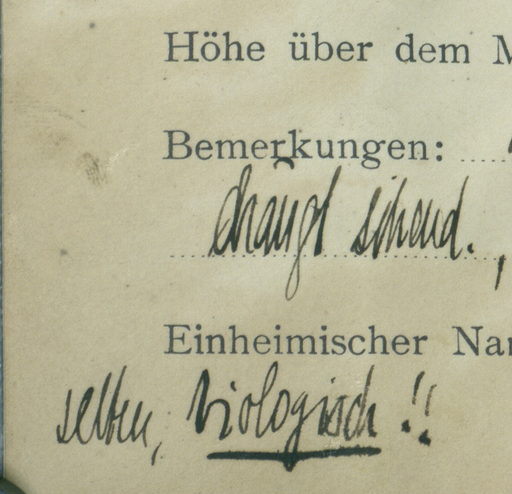 Höhe über dem M
Bemerkungen:
sitzend.
Einheimischer Nam
selten, biologisch!!